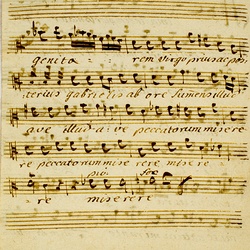 genita - - rem Virgo prius ac pos
terius gabrielis ab ore Sumens illud
ave illud a - ve peccatorum misere
re peccatorum misere rere misere
pia: for
re miserere